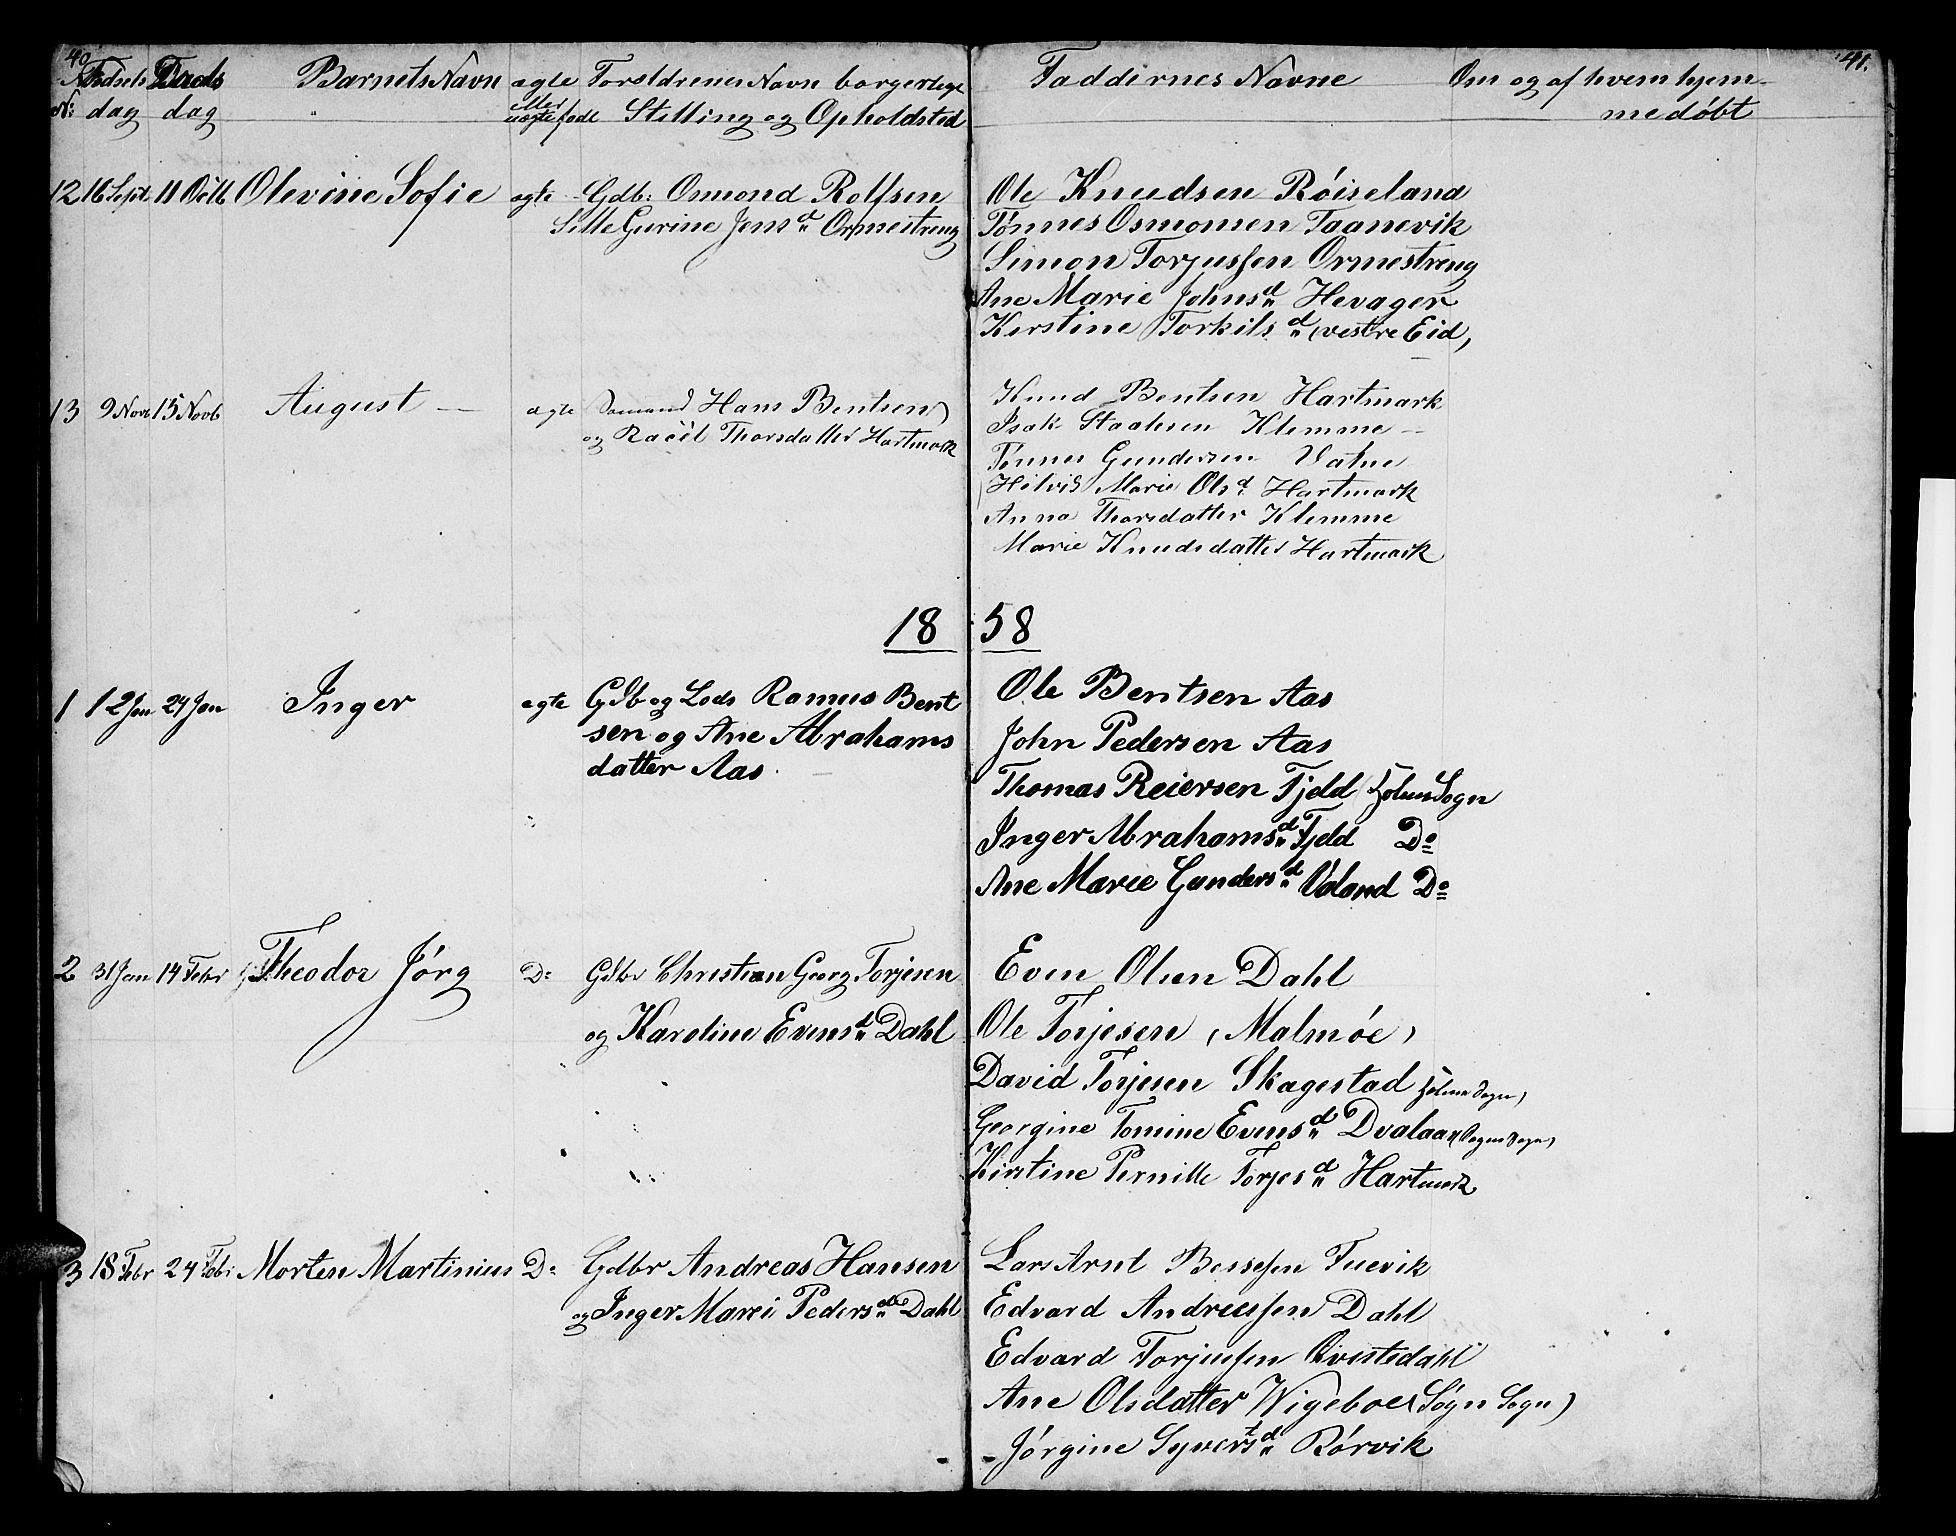 40
41.
Fødsels Daabs Barnets Navn ægte Forældrenes Navn borgerlige
No: dag dag eller uægte født Stilling og Opholdsted
Faddernes Navne Om og af hvem hjem-
medøbt
12 16 Sept 11 Octb Olevine Sofie ægte Gdb: Osmond Rolfsen
Sille Gurine Jensd Ormestreng
Ole Knudsen Röiseland
Tønnes Osmonsen Taanevik
Simon Torjussen Ormestreng
Ane Marie Johnsd Hevager
Kirstine Torkilsd (vestre Eid)
13 9 Novb 15 Novb August ægte Sømand Hans Bentsen
og Racil Thorsdatter Hartmark
Knud Bentsen Hartmark
Isak Staalesen Klemme
Tønnes Gundersen Vatne
Hilvis Marie Olsd Hartmark
Anna Thorsdatter Klemme
Marie Knudsdatter Hartmark
18 58
1 12 Jan 24 Jan Inger ægte Gdb og Lods Rasmus Bent
sen og Ane Abrahams
datter Aas
Ole Bentsen Aas
John Pedersen Aas
Thomas Reiersen Fjeld Holums Sogn
Inger Abrahamsd Fjeld Do
Ane Marie Gundersd Valand Do
2 31 Jan 14 Febr Theodor Jörg Do Gdbr Christian Georg Torjesen
og Karoline Evensd Dahl
Even Olsen Dahl
Ole Torjesen (Malmöe)
David Torjesen Skagestad Holums Sogn)
Georgine Tomine Evensd Dvalaas
Kirstine Pernille Torjesd Hartmark
3 18 Febr 24 Febr Morten Martinius Do Gdbr Andreas Hansen
og Inger Marei Pedersd Dahl
Lars Arnt Bessesen Tuevik
Edvard Andreassen Dahl
Edvard Torjussen Qvistedahl
Ane Olsdatter Wigeboe (Søgn Sogn)
Jörgine Syvertsd Rörvik